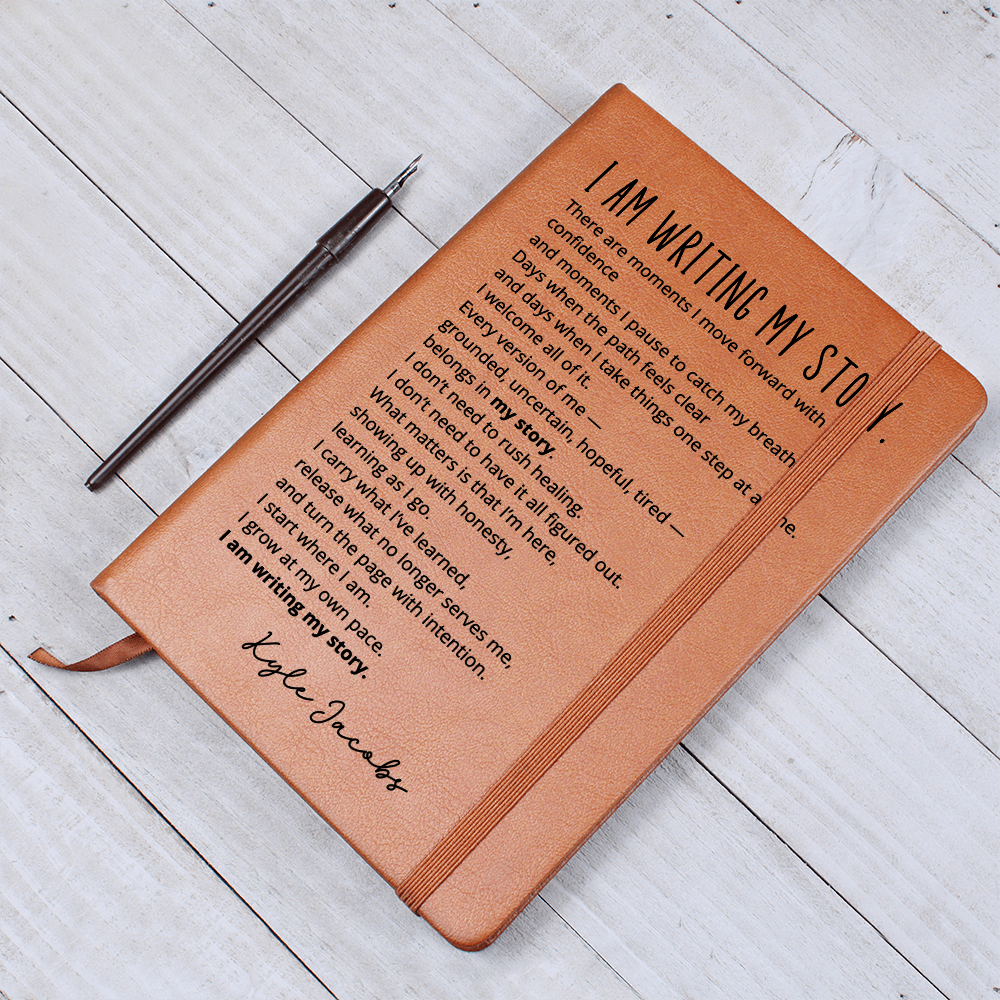 I AM WRITING MY STORY.
There are moments I move forward with
confidence
and moments I pause to catch my breath
Days when the path feels clear
and days when I take things one step at a time.
I welcome all of it.
Every version of me —
grounded, uncertain, hopeful, tired —
belongs in my story.
I don't need to rush healing.
I don't need to have it all figured out.
What matters is that I'm here,
showing up with honesty,
learning as I go.
I carry what I've learned,
release what no longer serves me,
and turn the page with intention.
I start where I am.
I grow at my own pace.
I am writing my story.
Kyle Jacobs